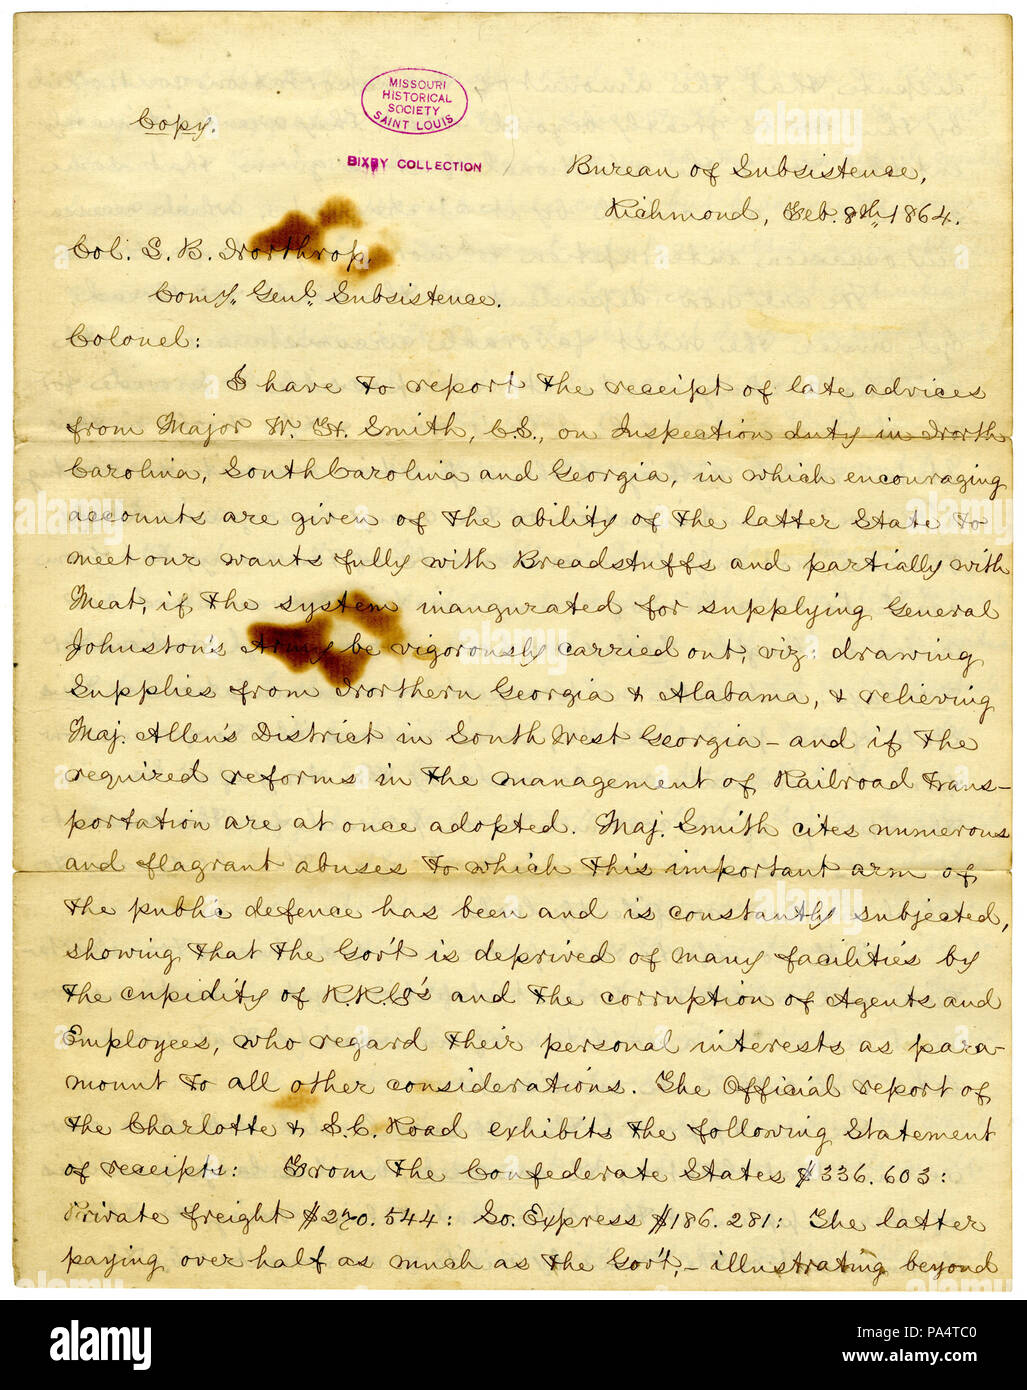 MISSOURI
HISTORICAL
SOCIETY
SAINT LOUIS
Copy.
BIXBY COLLECTION
Bureau of Subsistence,
Richmond, Feb. 8th, 1864.
Col. L. B. Northrop,
Comy. Genl. Subsistence.
Colonel:
I have to report the receipt of late advices
from Major W. H. Smith, C.S., on Inspection duty in North
Carolina, South Carolina and Georgia, in which encouraging
accounts are given of the ability of the latter State to
meet our wants fully with Breadstuffs and partially with
Meat, if the system inaugurated for supplying General
Johnston's Army be vigorously carried out, viz: drawing
Supplies from Northern Georgia & Alabama, & relieving
Maj. Allen's District in South West Georgia – and if the
required reforms in the management of Railroad trans-
portation are at once adopted. Maj. Smith cites numerous
and flagrant abuses to which this important arm of
the public defence has been and is constantly subjected,
showing that the Gov't is deprived of many facilities by
the cupidity of R.R.Co's and the corruption of Agents and
Employees, who regard their personal interests as para-
mount to all other considerations. The Official report of
the Charlotte & S.C. Road exhibits the following Statement
of receipts: From the Confederate States $336.603:
Private freight $270.544: So. Express $186.281: The latter
paying over half as much as the Gov't, – illustrating beyond
alamy
Image ID: PA4TC0
www.alamy.com